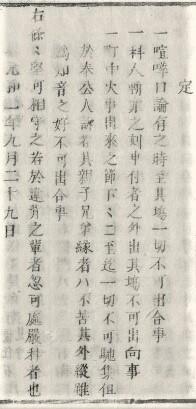 定
一喧嘩口論有之時至其場一切不可出合事
一科人朝罪之刻申付者之外出其場不可出向事
一町中火事出来之節下々ニ至迄一切不可馳集但
於奉公人訴者其親子兄弟縁者ハ不苦其外縦雖
為知音之好不可出合事
右條々堅可相守之若於違背之輩者忽可處嚴科者也
元和一年九月二十九日